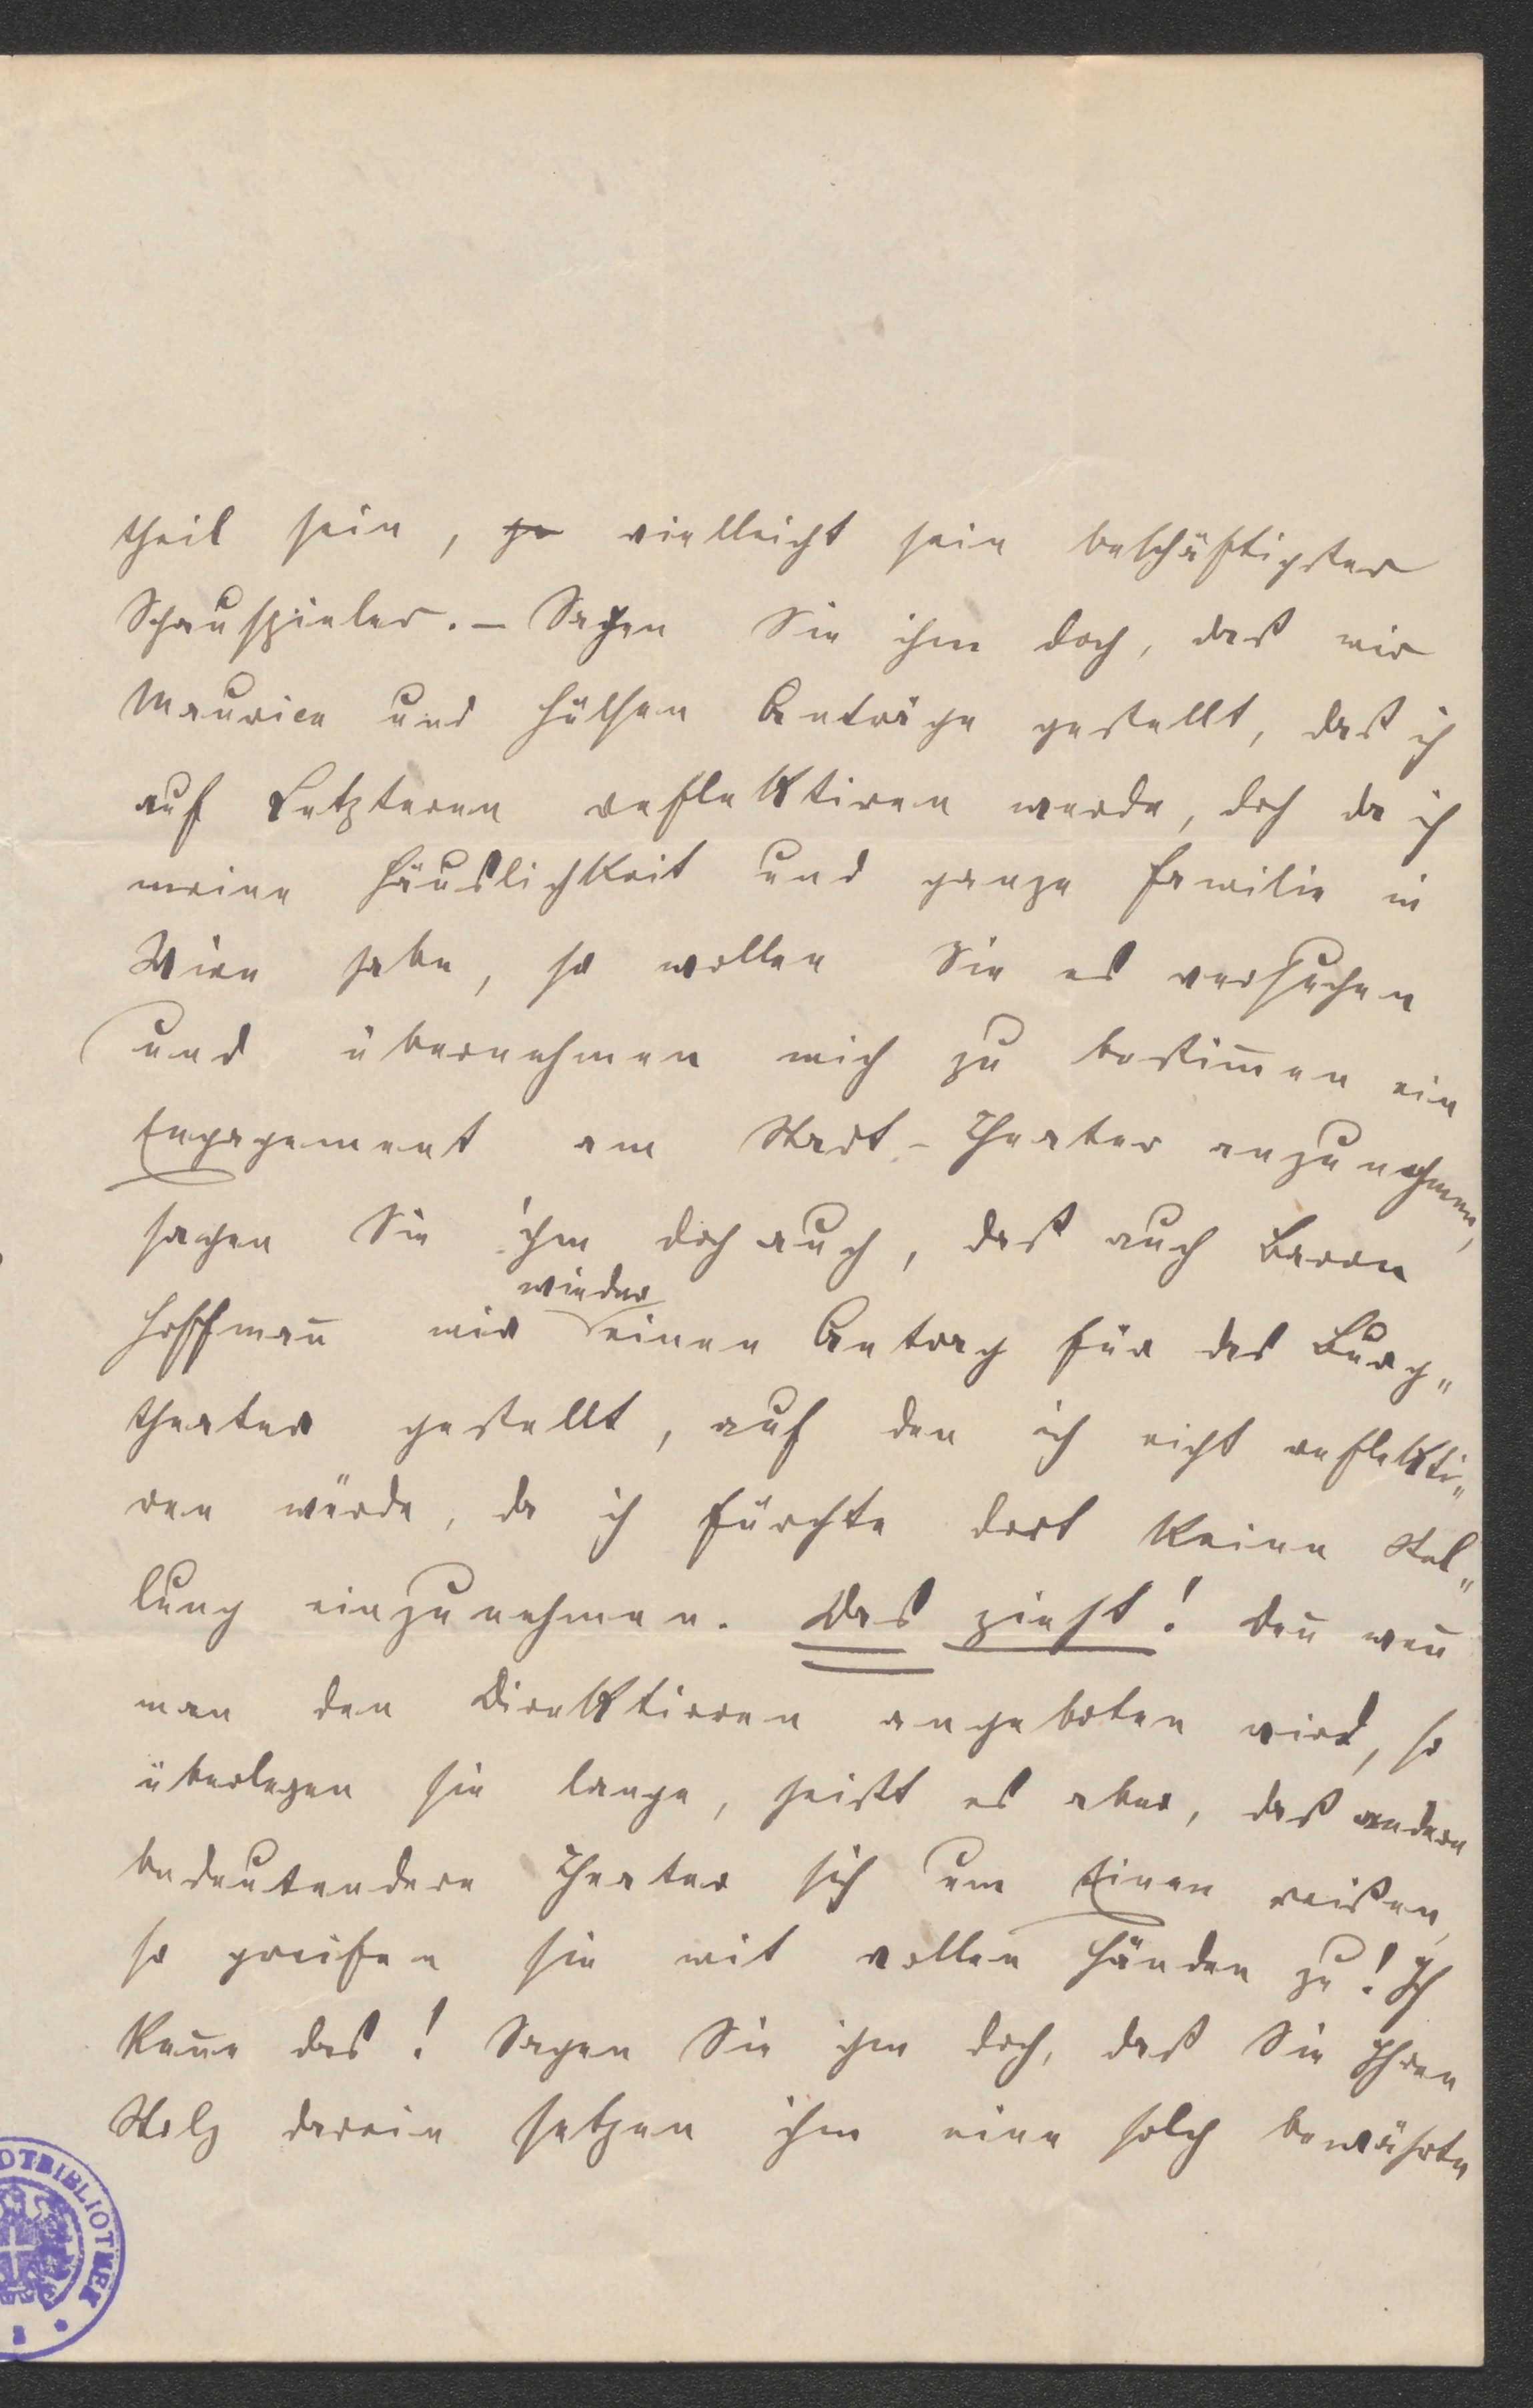 theil sein, ja vielleicht sein beschäftigster
Schauspieler. – Sagen Sie ihm doch, daß mir
Maurice und Hülsen Anträge gestellt, daß ich
auf Letzteren reflektiren werde, doch da ich
meine Häuslichkeit und ganze Familie in
Wien habe, so wollen Sie es versuchen
und übernehmen mich zu bestim̄en ein
Engagement am Stadt-Theater anzunehmen,
sagen Sie ihm doch auch, daß auch Baron
wieder
Hoffman̄ mir einen Antrag für das Burg„
theater gestellt, auf den ich nicht reflekti„
ren würde, da ich fürchte dort keine Stel„
lung einzunehmen. Das zieht! Den̄ wen̄
man den Direktioren angeboten wird, so
überlegen sie lange, heißt es aber, daß andere
bedeutendere Theater sich um Einen reißen,
so greifen sie mit vollen Händen zu! Ich
ken̄e das! Sagen Sie ihm doch, daß Sie Ihren
Stolz darein setzen ihm eine solch bewährte
OTBIBLIOTHEK